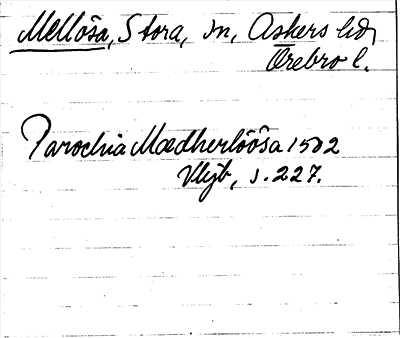 Mellösa, Stora, sn, Askers hd,
Örebro l.
Parochia Mædherlöösa 1502
s. 227.